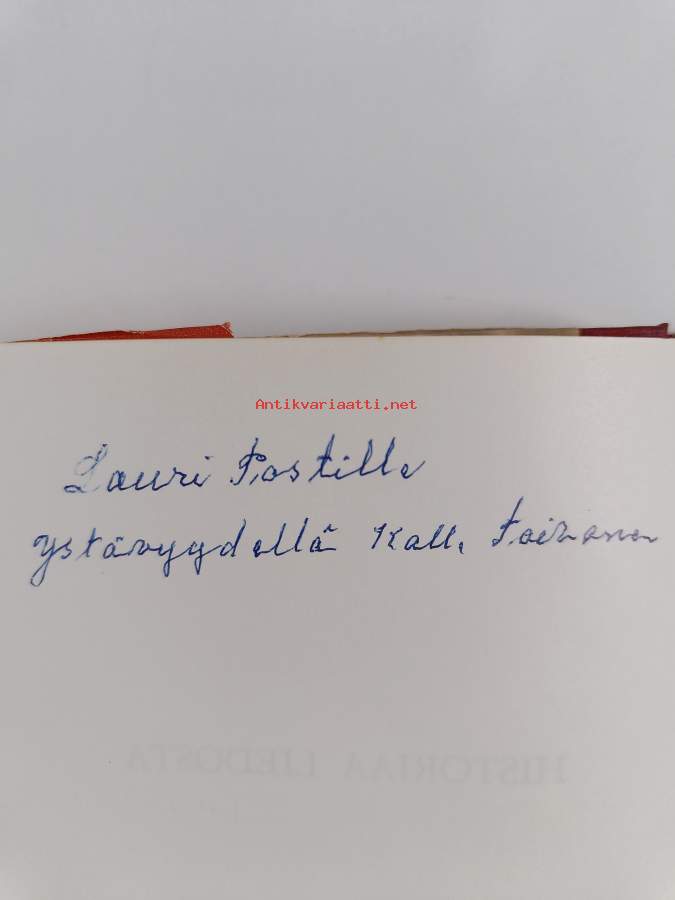 Antikvariaatti.net
Lauri Postille
ystävyydellä Kalle
HISTORIAA LIEDOSTA